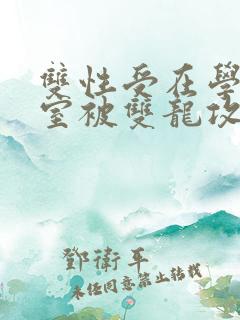 雙性受在學
室被雙龍攻
鄧衛平
未经同意禁止转载